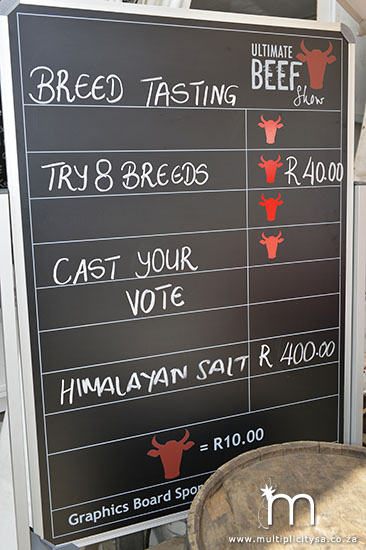 ULTIMATE
BEEF
Show
BREED TASTING
TRY 8 BREEDS R 40.00
CAST YOUR
VOTE
HIMALAYAN SALT R 400.00
= R10.00
Graphics Board Spon
m
www.multiplicitysa.co.za